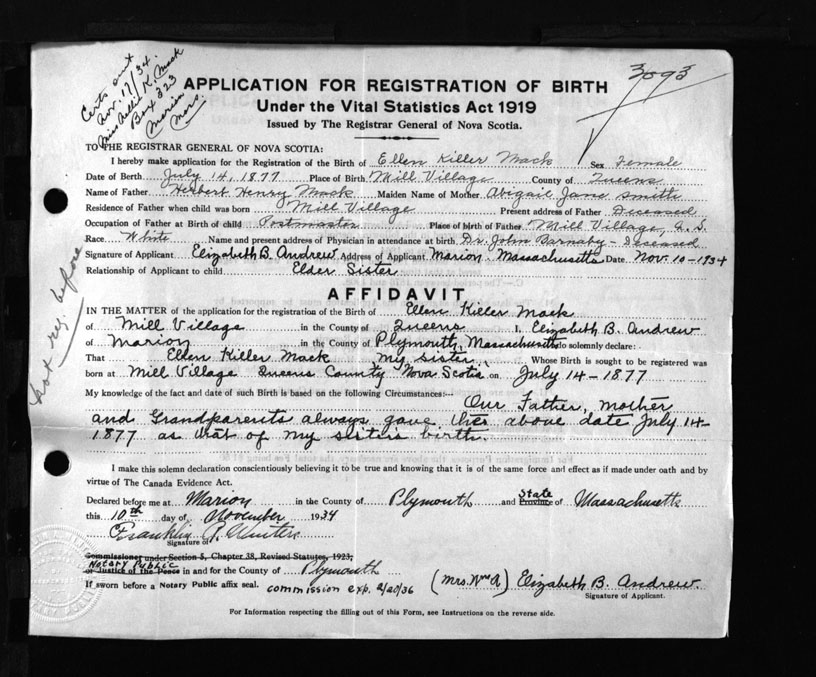 Certs sent
Nov. 17/34.
Miss Nellie K. Mack
Box 323
Marion
Mass.
3093
APPLICATION FOR REGISTRATION OF BIRTH
Under the Vital Statistics Act 1919
Issued by The Registrar General of Nova Scotia.
TO THE REGISTRAR GENERAL OF NOVA SCOTIA:
I hereby make application for the Registration of the Birth of Ellen Killer Mack Sex Female
Date of Birth July 14, 1877 Place of Birth Mill Village County of Queens
Name of Father Herbert Henry Mack Maiden Name of Mother Abigail Jane Smith
Residence of Father when child was born Mill Village Present address of Father Deceased
Occupation of Father at Birth of child Postmaster Place of birth of Father Mill Village, N.S.
Race White Name and present address of Physician in attendance at birth Dr. John Barnaby - Deceased
Signature of Applicant Elizabeth B. Andrew Address of Applicant Marion, Massachusetts Date Nov. 10-1934
Relationship of Applicant to child Elder Sister
Not reg. before
AFFIDAVIT
IN THE MATTER of the application for the registration of the Birth of Ellen Killer Mack
of Mill Village in the County of Queens I, Elizabeth B. Andrew
of Marion in the County of Plymouth, Massachusetts do solemnly declare:
That Ellen Killer Mack my sister Whose Birth is sought to be registered was
born at Mill Village Queens County Nova Scotia on July 14-1877
My knowledge of the fact and date of such Birth is based on the following Circumstances:- Our Father, Mother
and Grandparents always gave the above date July 14-
1877 as that of my sisters birth.
I make this solemn declaration conscientiously believing it to be true and knowing that it is of the same force and effect as if made under oath and by
virtue of The Canada Evidence Act.
Declared before me at Marion in the County of Plymouth and State Province of Massachusetts
this 10th day of November 1934
Franklin
Signature of
Commissioner under Section 5, Chapter 38, Revised Statutes, 1923,
Notary Public
or Justice of the Peace in and for the County of Plymouth
If sworn before a Notary Public affix seal. commission exp. 2/20/36 (Mrs. Wm A) Elizabeth B. Andrew.
Signature of Applicant.
For Information respecting the filling out of this Form, see Instructions on the reverse side.